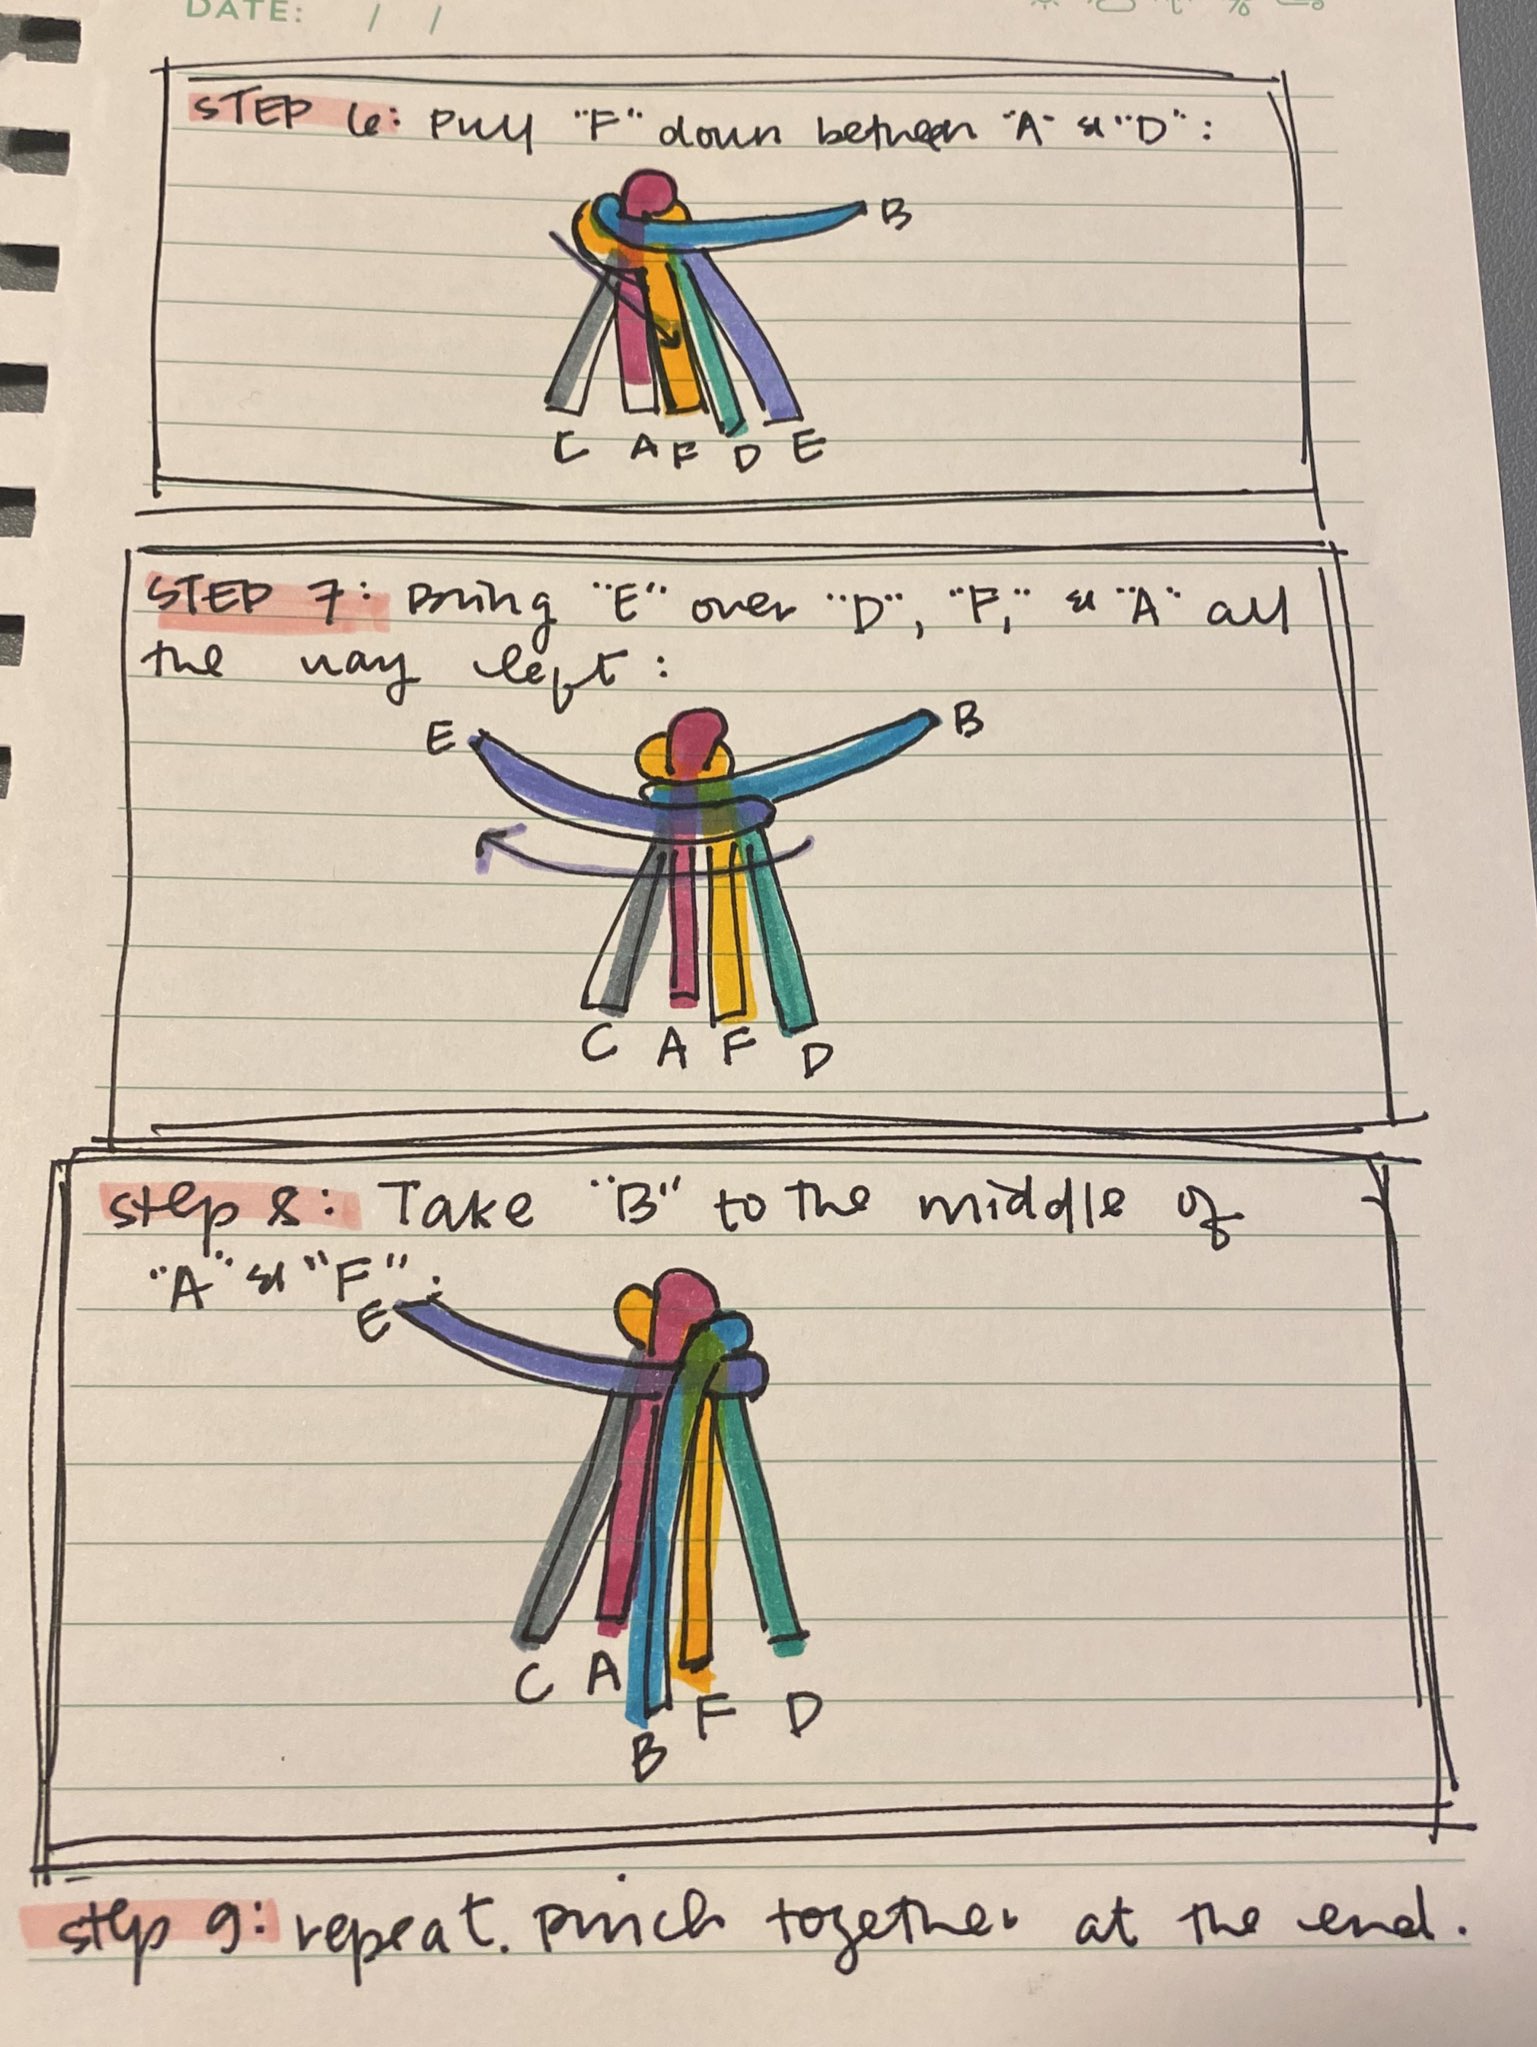 DATE: / /
STEP 6: Pull "F" down between "A" & "D":
B
C A F D E
STEP 7: Bring "E" over "D", "F," & "A" all
the way left:
E B
C A F D
step 8: Take "B" to the middle of
"A" & "F":
E
C A F D
B
step 9: repeat. Pinch together at the end.